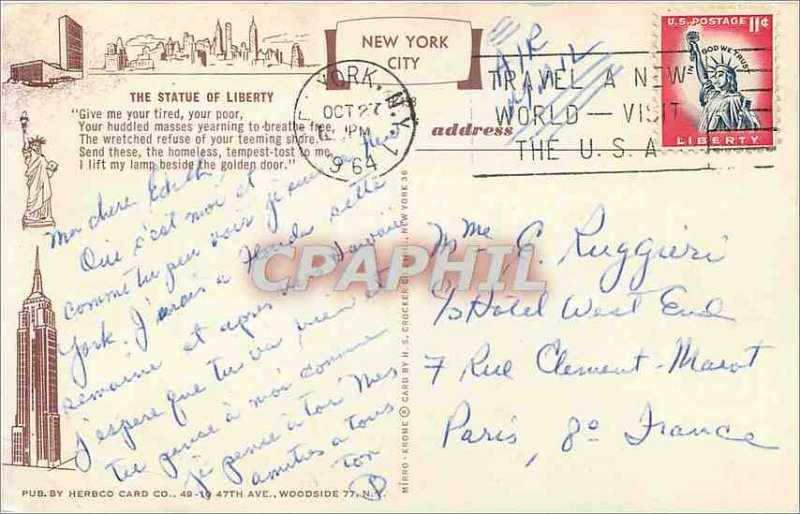 NEW YORK
CITY
AIR
MAIL
U.S. POSTAGE 11¢
IN GOD WE TRUST
LIBERTY
YORK, N.Y.
OCT 27
PM
1964
TRAVEL A NEW
WORLD — VISIT
THE U.S.A.
THE STATUE OF LIBERTY
"Give me your tired, your poor,
Your huddled masses yearning to breathe free,
The wretched refuse of your teeming shore.
Send these, the homeless, tempest-tost to me,
I lift my lamp beside the golden door."
address
Ma chere Edith
Oui c'est moi et
comme tu peu voir je suis a New
York. J'irais a Florida sette
semaine et apres a Hawaii
J'espere que tu va bien et
tu pence à moi comme
je pence à toi Mes
amities a tous
ton
P
Mme G. Ruggieri
c/o Hotel West End
7 Rue Clement-Marot
Paris, 8e France
CPAPHIL
MIRRO-KROME ® CARD BY H. S. CROCKER CO., NEW YORK 36
PUB. BY HERBCO CARD CO., 49-19 47TH AVE., WOODSIDE 77, N.Y.